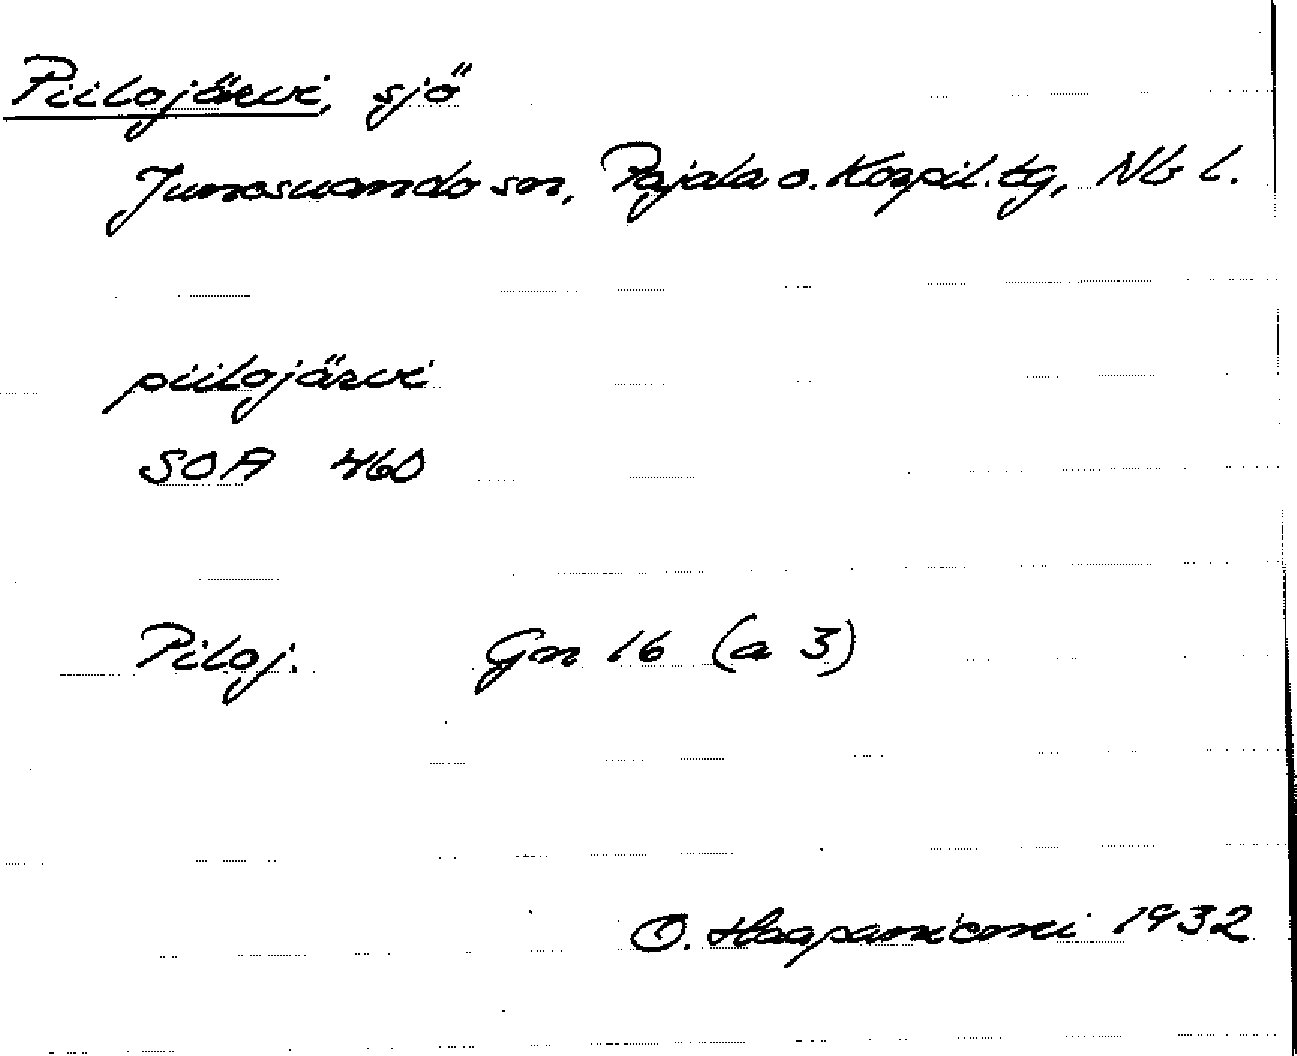 Piilojärvi, sjö
Junosuando sn, Pajala o. Korpil. tg, Nb l.
piilojärvi
SOA 460
Piloj. Gn 16 (a 3)
O. Haapaniemi 1932